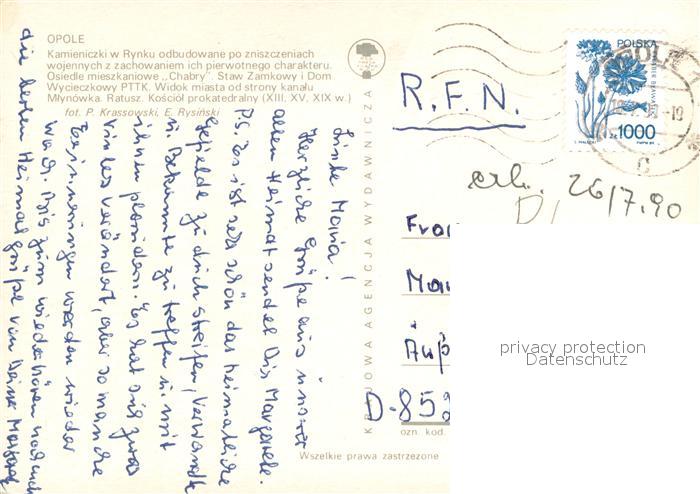 OPOLE
Kamieniczki w Rynku odbudowane po zniszczeniach
wojennych z zachowaniem ich pierwotnego charakteru.
Osiedle mieszkaniowe „Chabry”. Staw Zamkowy i Dom
Wycieczkowy PTTK. Widok miasta od strony kanału
Młynówka. Ratusz. Kościół prokatedralny (XIII, XV, XIX w.)
fot. P. Krassowski, E. Rysiński
POLSKA
1000
R.F.N.
erh. 26/7.90
Liebe Maria!
Herzliche Grüße aus unserer
alten Heimat sendet Dir Margarete.
P.S. Es ist sehr schön das Heimatliche
Gefilde zu durchstreifen, Verwandte
u. Bekannte zu treffen u. mit
ihnen plaudern. Es hat sich zwar
vieles verändert, aber so manche
Erinnerungen werden wieder
wach. Bis zum wiederhören noch euch
die besten Heimatgrüße von Deiner
KRAJOWA AGENCJA WYDAWNICZA
D-859
ozn. kod.
Wszelkie prawa zastrzeżone
privacy protection
Datenschutz